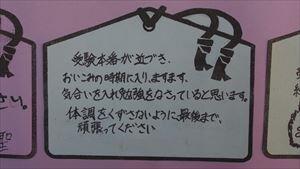 受験本番が近づき、
おいこみの時期に入り、ますます、
気合いを入れ勉強をなさっていると思います。
体調をくずさないように最後まで、
頑張ってください
さい。
聖